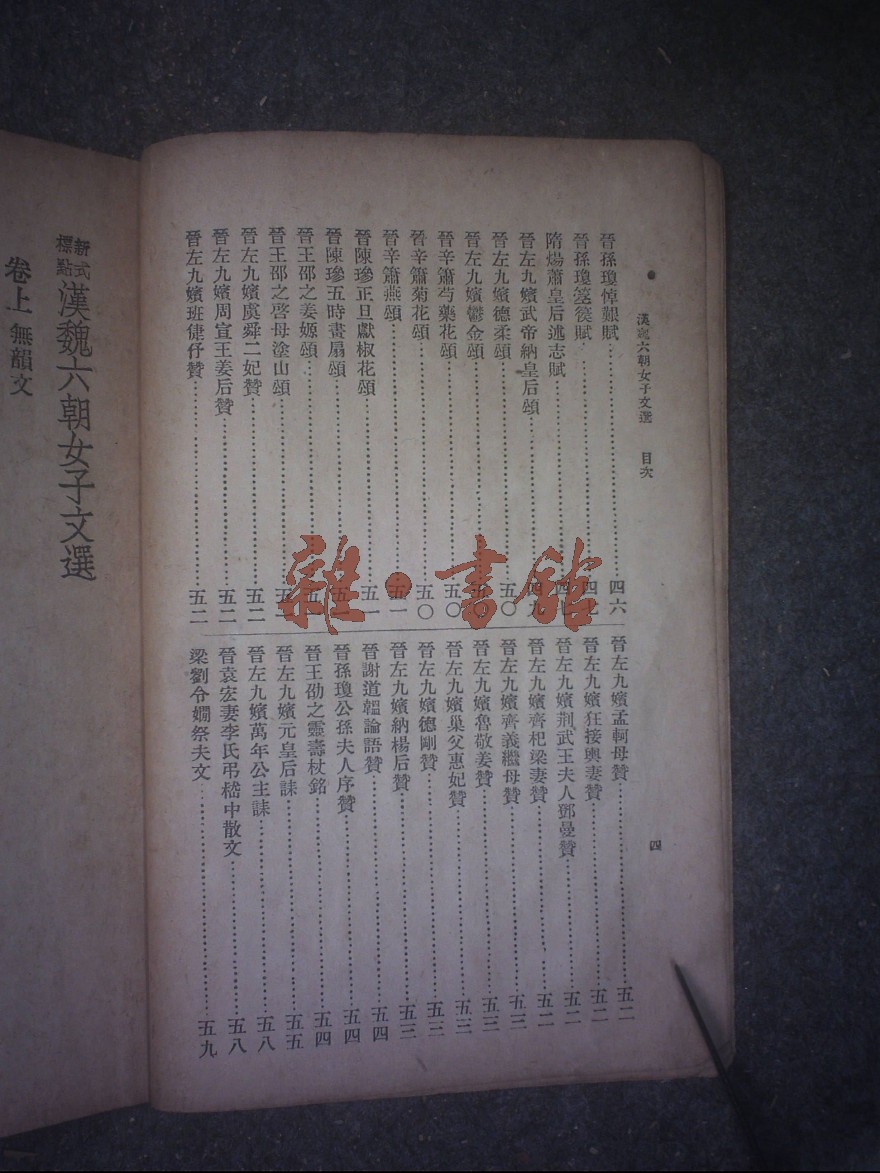 漢魏六朝女子文選 目次
四
晉孫瓊悼艱賦 四六
晉孫瓊箜篌賦 四七
隋煬蕭皇后述志賦 四七
晉左九嬪武帝納皇后頌 四九
晉左九嬪德柔頌 五〇
晉左九嬪鬱金頌 五〇
晉辛簫芍藥花頌 五〇
晉辛簫菊花頌 五〇
晉辛簫燕頌 五一
晉陳㻸正旦獻椒花頌 五一
晉陳㻸五時畫扇頌 五一
晉王邵之姜嫄頌 五一
晉王邵之啓母塗山頌 五二
晉左九嬪虞舜二妃贊 五二
晉左九嬪周宣王姜后贊 五二
晉左九嬪班倢伃贊 五二
晉左九嬪孟軻母贊 五二
晉左九嬪狂接輿妻贊 五二
晉左九嬪荆武王夫人鄧曼贊 五二
晉左九嬪齊杞梁妻贊 五二
晉左九嬪齊義繼母贊 五三
晉左九嬪魯敬姜贊 五三
晉左九嬪巢父惠妃贊 五三
晉左九嬪德剛贊 五三
晉左九嬪納楊后贊 五三
晉謝道韞論語贊 五四
晉孫瓊公孫夫人序贊 五四
晉王劭之靈壽杖銘 五四
晉左九嬪元皇后誄 五五
晉左九嬪萬年公主誄 五八
晉袁宏妻李氏弔嵇中散文 五八
梁劉令嫺祭夫文 五九
新式標點漢魏六朝女子文選
卷上 無韻文
雜·書館